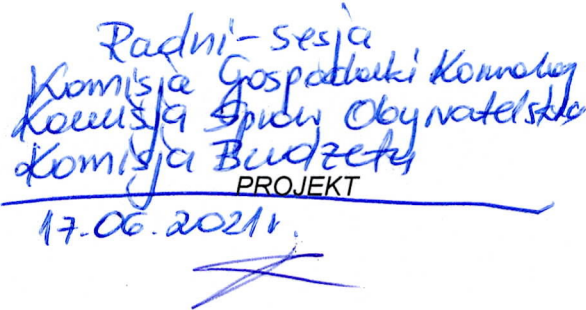 Radni-sesja
Komisja Gospodarki Komunalnej
Komisja Spraw Obywatelskich
Komisja Budżetu
PROJEKT
17.06.2021r.